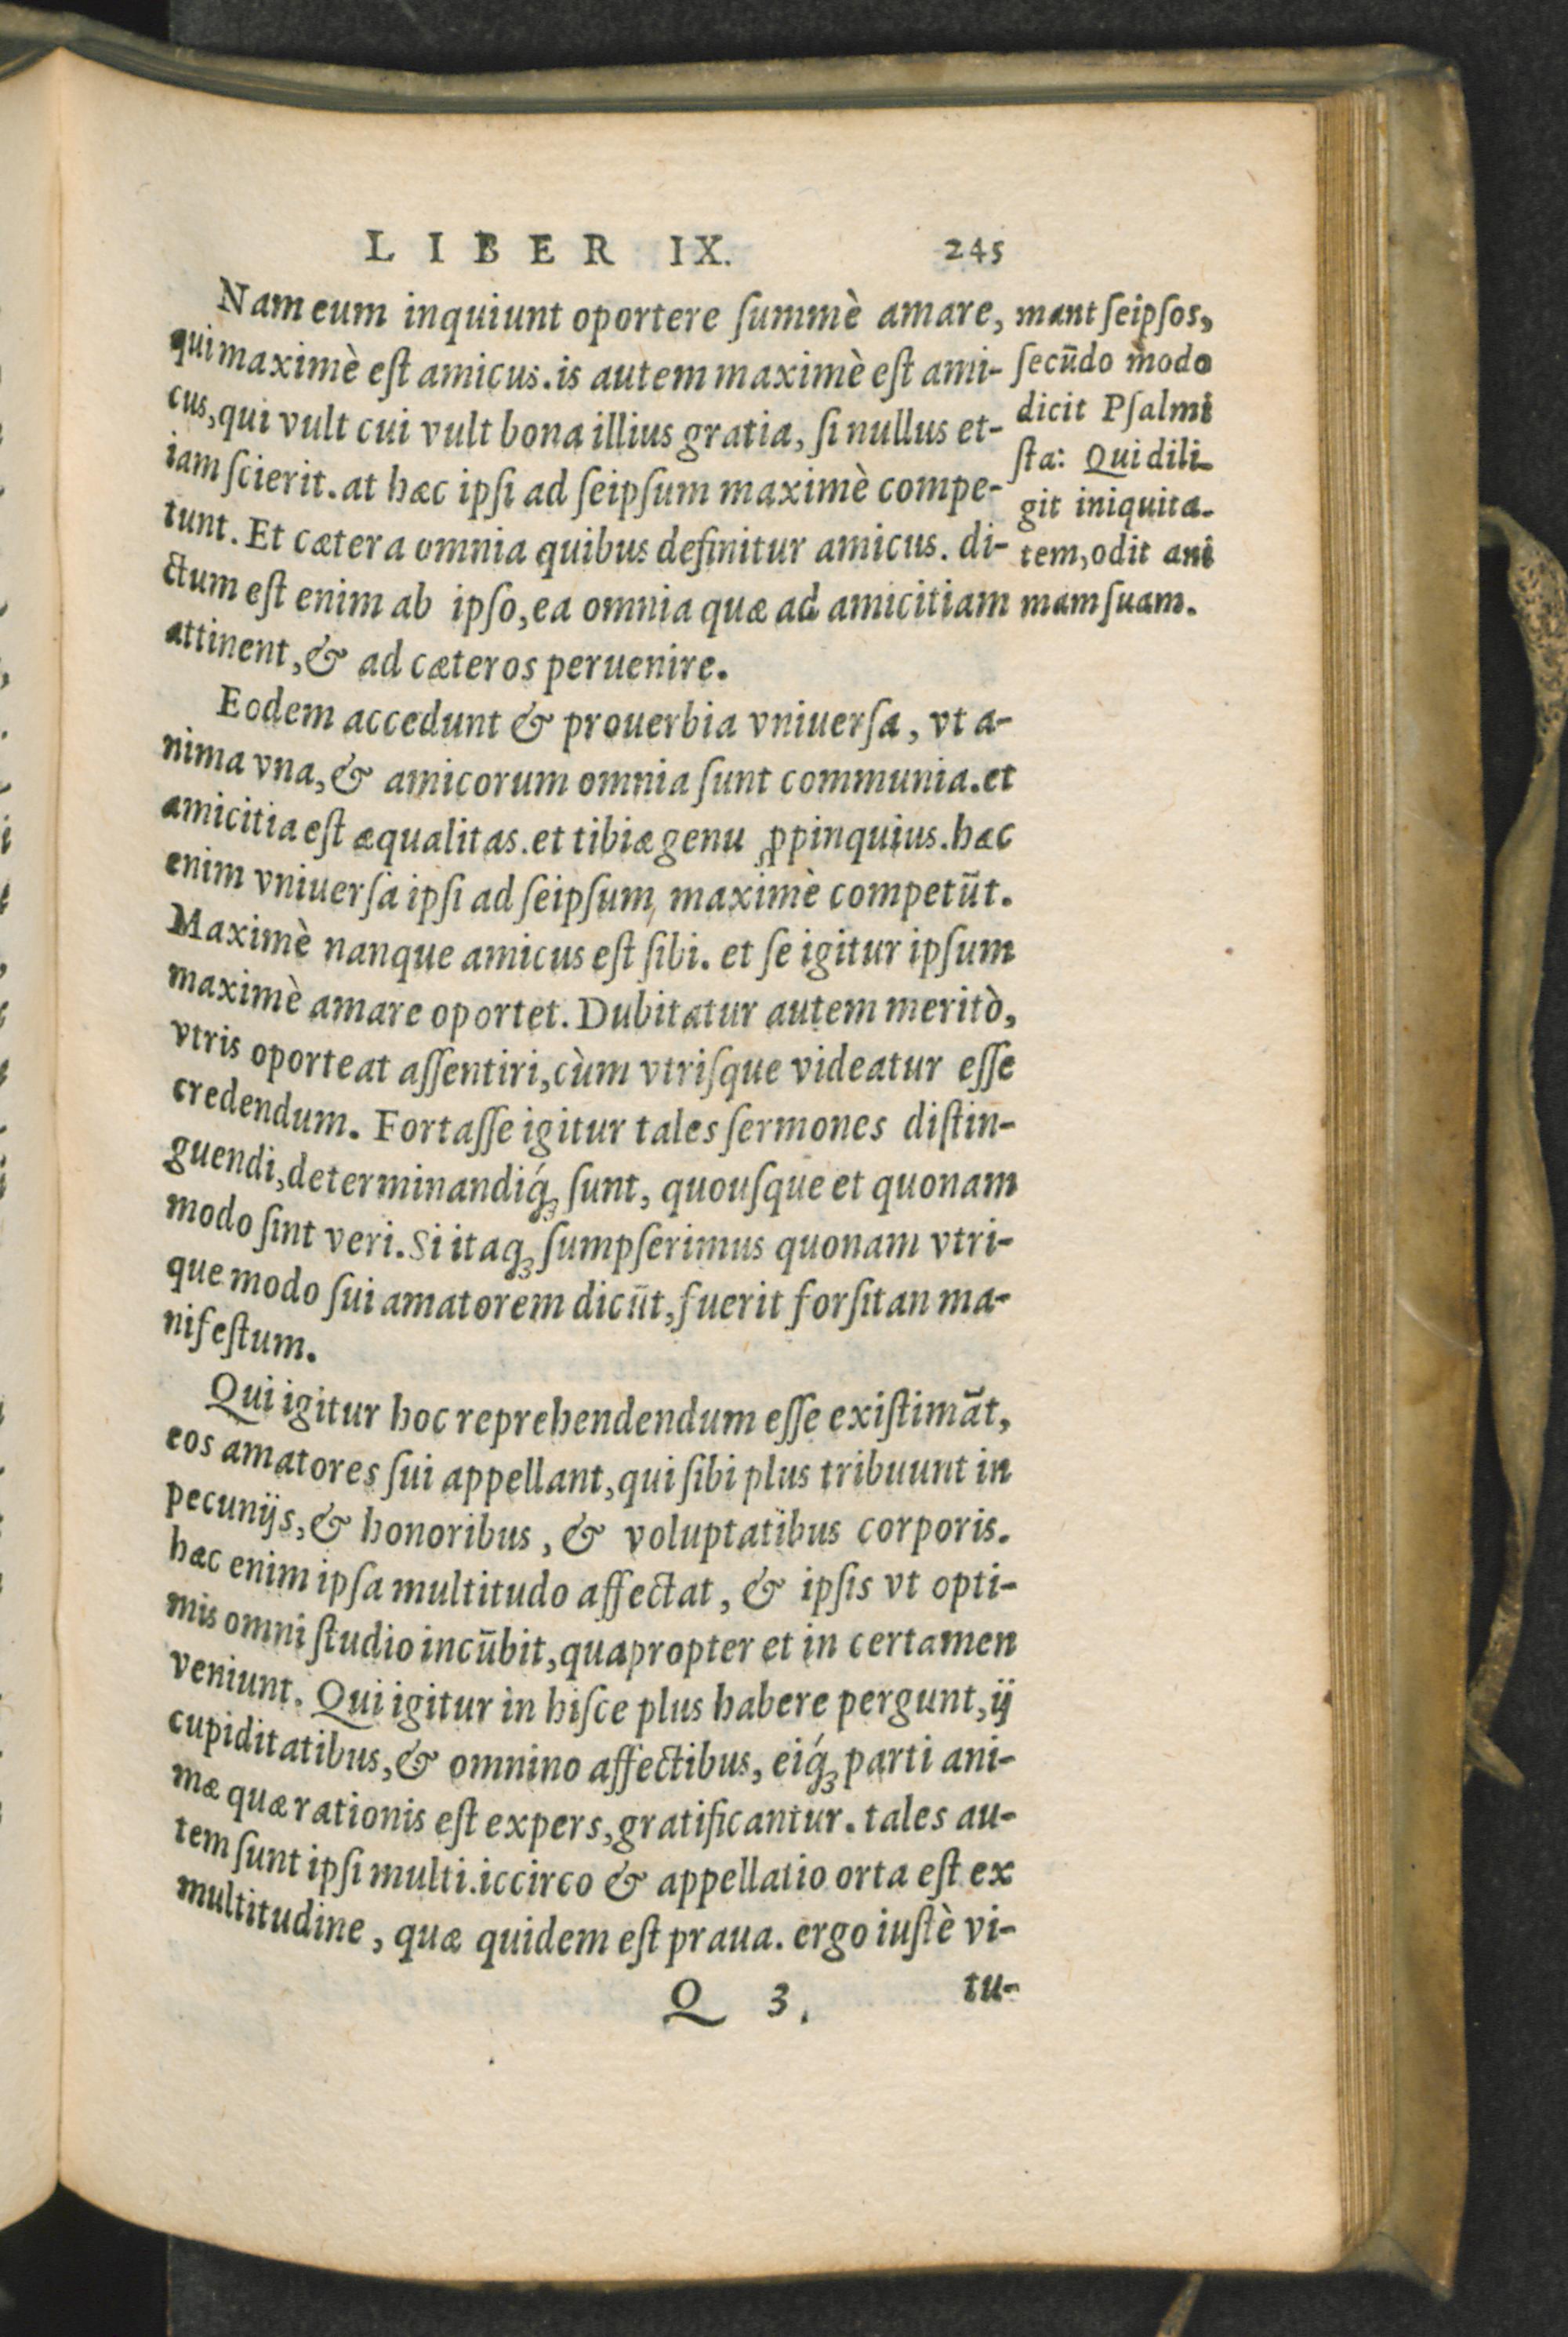 LIBER IX. 245
Nam eum inquiunt oportere ſummè amare,
qui maximè eſt amicus. is autem maximè eſt ami-
cus, qui vult cui vult bona illius gratia, ſi nullus et-
iam ſcierit. at hæc ipſi ad ſeipſum maximè compe-
tunt. Et cætera omnia quibus definitur amicus. di-
ctum eſt enim ab ipſo, ea omnia quæ ad amicitiam
attinent, & ad cæteros peruenire.
Eodem accedunt & prouerbia vniuerſa, vt a-
nima vna, & amicorum omnia ſunt communia. et
amicitia eſt æqualitas. et tibiæ genu ꝓpinquius. hæc
enim vniuerſa ipſi ad ſeipſum, maximè competūt.
Maximè nanque amicus eſt ſibi. et ſe igitur ipſum
maximè amare oportet. Dubitatur autem meritò,
vtris oporteat aſſentiri, cùm vtriſque videatur eſſe
credendum. Fortaſſe igitur tales ſermones diſtin-
guendi, determinandiq́ꝫ ſunt, quouſque et quonam
modo ſint veri. Si itaqꝫ ſumpſerimus quonam vtri-
que modo ſui amatorem dicūt, fuerit forſitan ma-
nifeſtum.
Qui igitur hoc reprehendendum eſſe exiſtimāt,
eos amatores ſui appellant, qui ſibi plus tribuunt in
pecunijs, & honoribus, & voluptatibus corporis.
hæc enim ipſa multitudo affectat, & ipſis vt opti-
mis omni ſtudio incūbit, quapropter et in certamen
veniunt. Qui igitur in hiſce plus habere pergunt, ij
cupiditatibus, & omnino affectibus, eiq́ꝫ parti ani-
mæ quæ rationis eſt expers, gratificantur. tales au-
tem ſunt ipſi multi. iccirco & appellatio orta eſt ex
multitudine, quæ quidem eſt praua. ergo iuſtè vi-
Q 3. tu-
mant ſeipſos,
ſecūdo modo
dicit Pſalmi
ſta: Qui dili-
git iniquita-
tem, odit ani
mam ſuam.